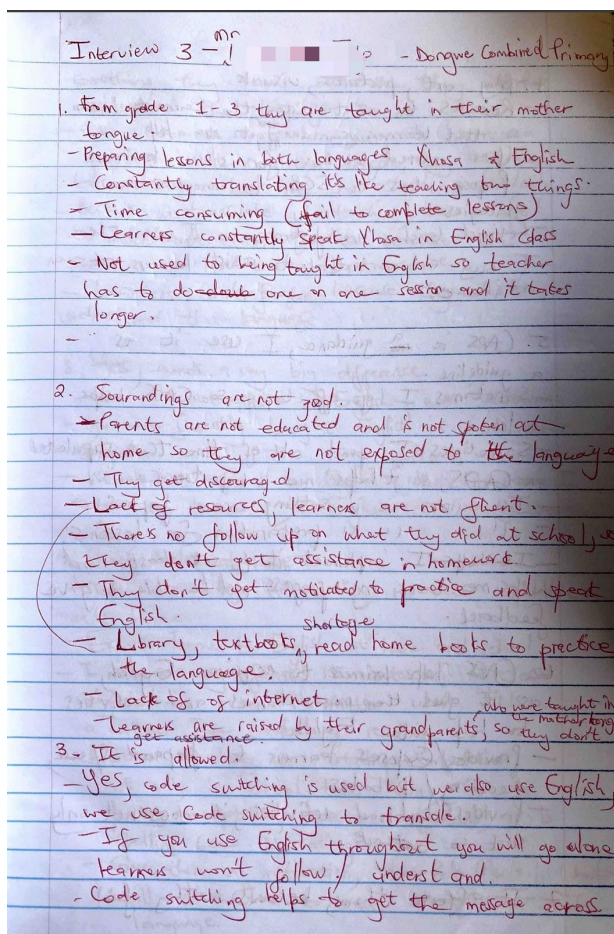 Interview 3 - Mr - Dongwe Combined Primary
1. from grade 1-3 they are taught in their mother
tongue.
- Preparing lessons in both languages Xhosa & English
- Constantly translating it's like teaching two things.
- Time consuming (fail to complete lessons)
- Learners constantly speak Xhosa in English Class
- Not used to being taught in English so teacher
has to do one on one session and it takes
longer.
-
2. Sourandings are not good.
- Parents are not educated and is not spoken at
home so they are not exposed to the language
- They get discouraged
- Lack of resources, learners are not fluent.
- There's no follow up on what they did at school, so
they don't get assistance in homework.
- They don't get motivated to practice and speak
English.
shortage
- Library, textbooks, read home books to practice
the language.
- Lack of of internet
who were taught in
- Learners are raised by their grandparents, the mother tong
so they don't
get assistance.
3. It is allowed.
- Yes, code switching is used but we also use English,
we use Code switching to transale.
- If you use English throughout you will go alone
learners won't follow / understand.
- Code switching helps to get the message across.